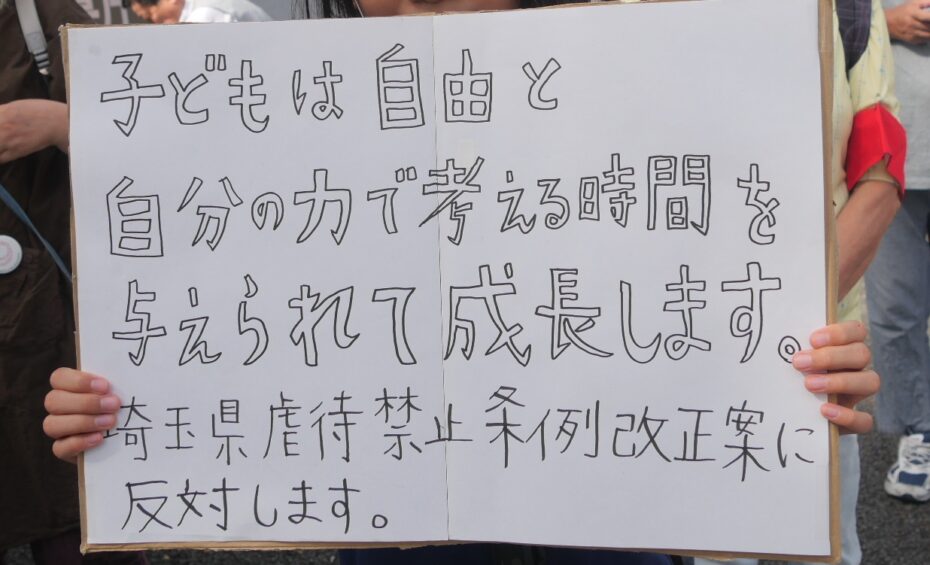 子どもは自由と
自分の力で考える時間を
与えられて成長します。
埼玉県虐待禁止条例改正案に
反対します。